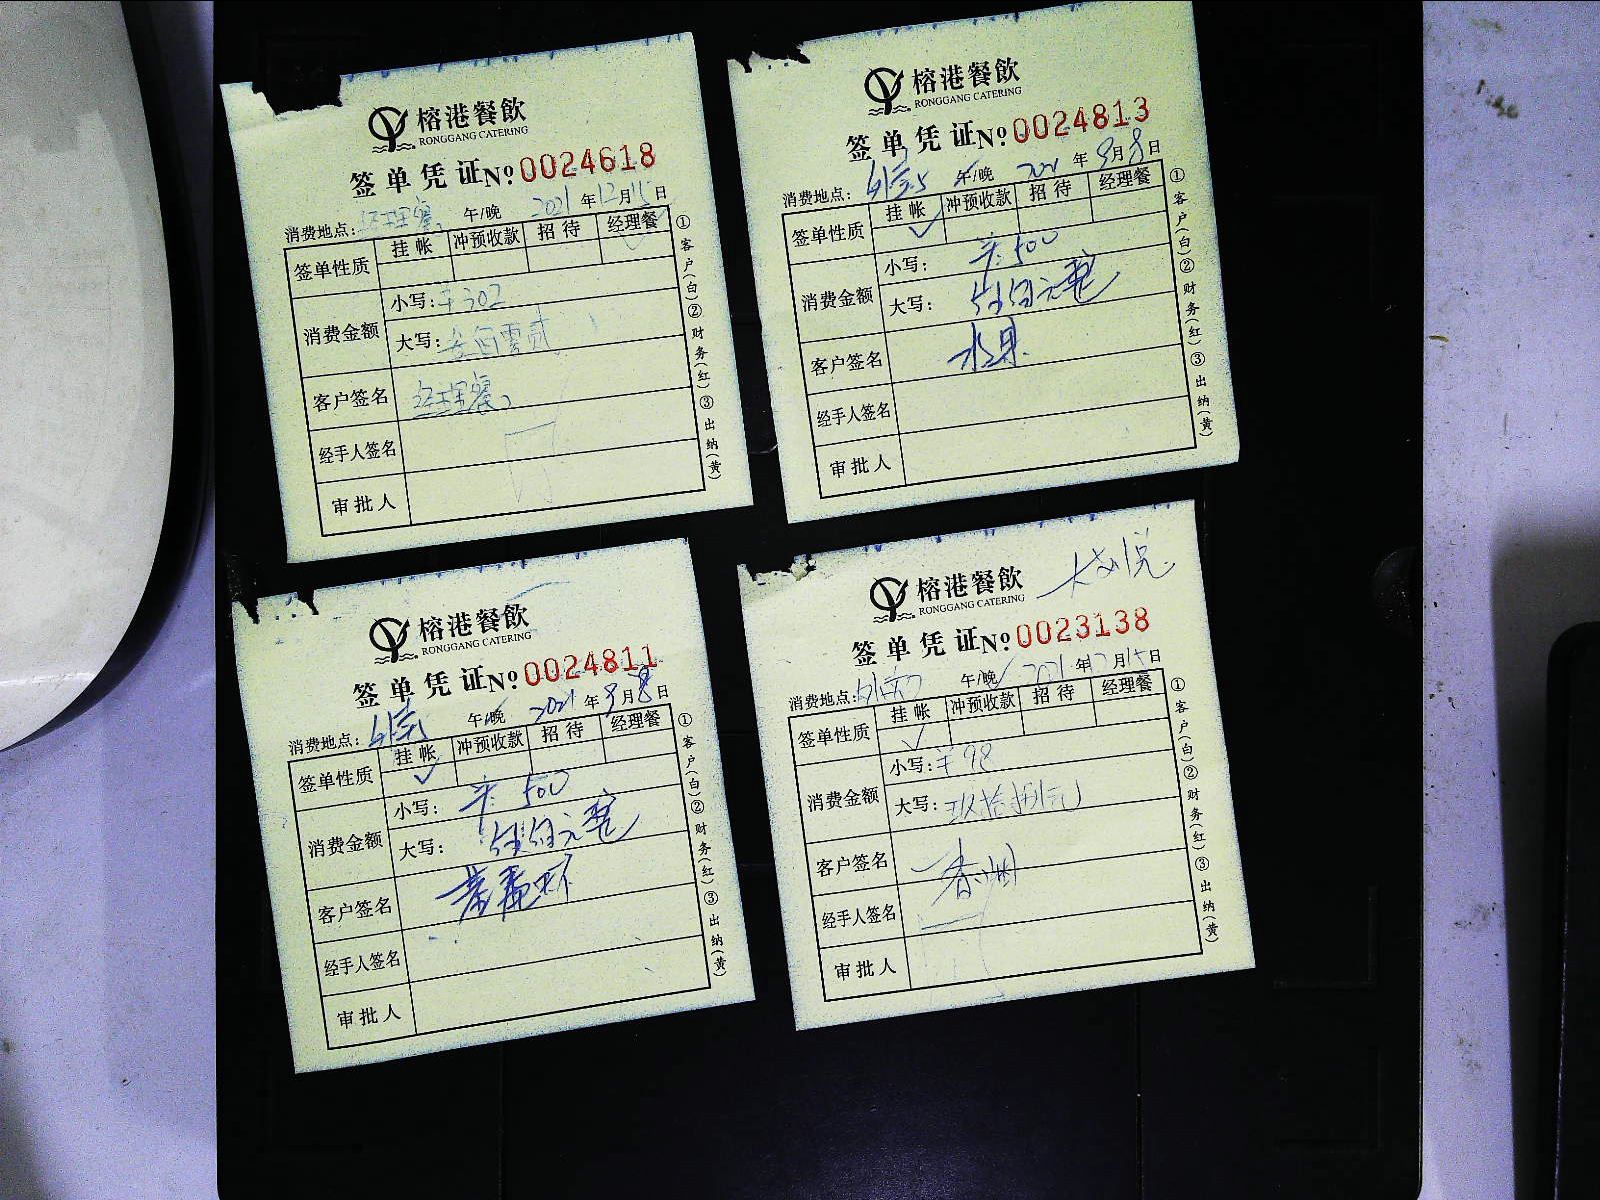 榕港餐飲
RONGGANG CATERING
签单凭证No 0024618
消费地点: 经理餐 午/晚 2021年12月15日
签单性质 挂帐 冲预收款 招待 经理餐
消费金额
小写: ¥302
大写: 叁百零贰
客户签名 经理餐
经手人签名
审批人
①客户(白)②财务(红)③出纳(黄)
榕港餐飲
RONGGANG CATERING
签单凭证No 0024813
消费地点: 午/晚 2021年9月8日
签单性质 挂帐 冲预收款 招待 经理餐
消费金额
小写: ¥: 500
大写: 伍佰元整
客户签名 水果
经手人签名
审批人
①客户(白)②财务(红)③出纳(黄)
榕港餐飲
RONGGANG CATERING
签单凭证No 0024811
消费地点: 午/晚 2021年9月8日
签单性质 挂帐 冲预收款 招待 经理餐
消费金额
小写: ¥: 500
大写: 伍佰元整
客户签名
经手人签名
审批人
①客户(白)②财务(红)③出纳(黄)
榕港餐飲
RONGGANG CATERING
签单凭证No 0023138
消费地点: 午/晚 2021年12月15日
签单性质 挂帐 冲预收款 招待 经理餐
消费金额
小写: ¥98
大写: 玖拾捌元
客户签名
经手人签名
审批人
①客户(白)②财务(红)③出纳(黄)